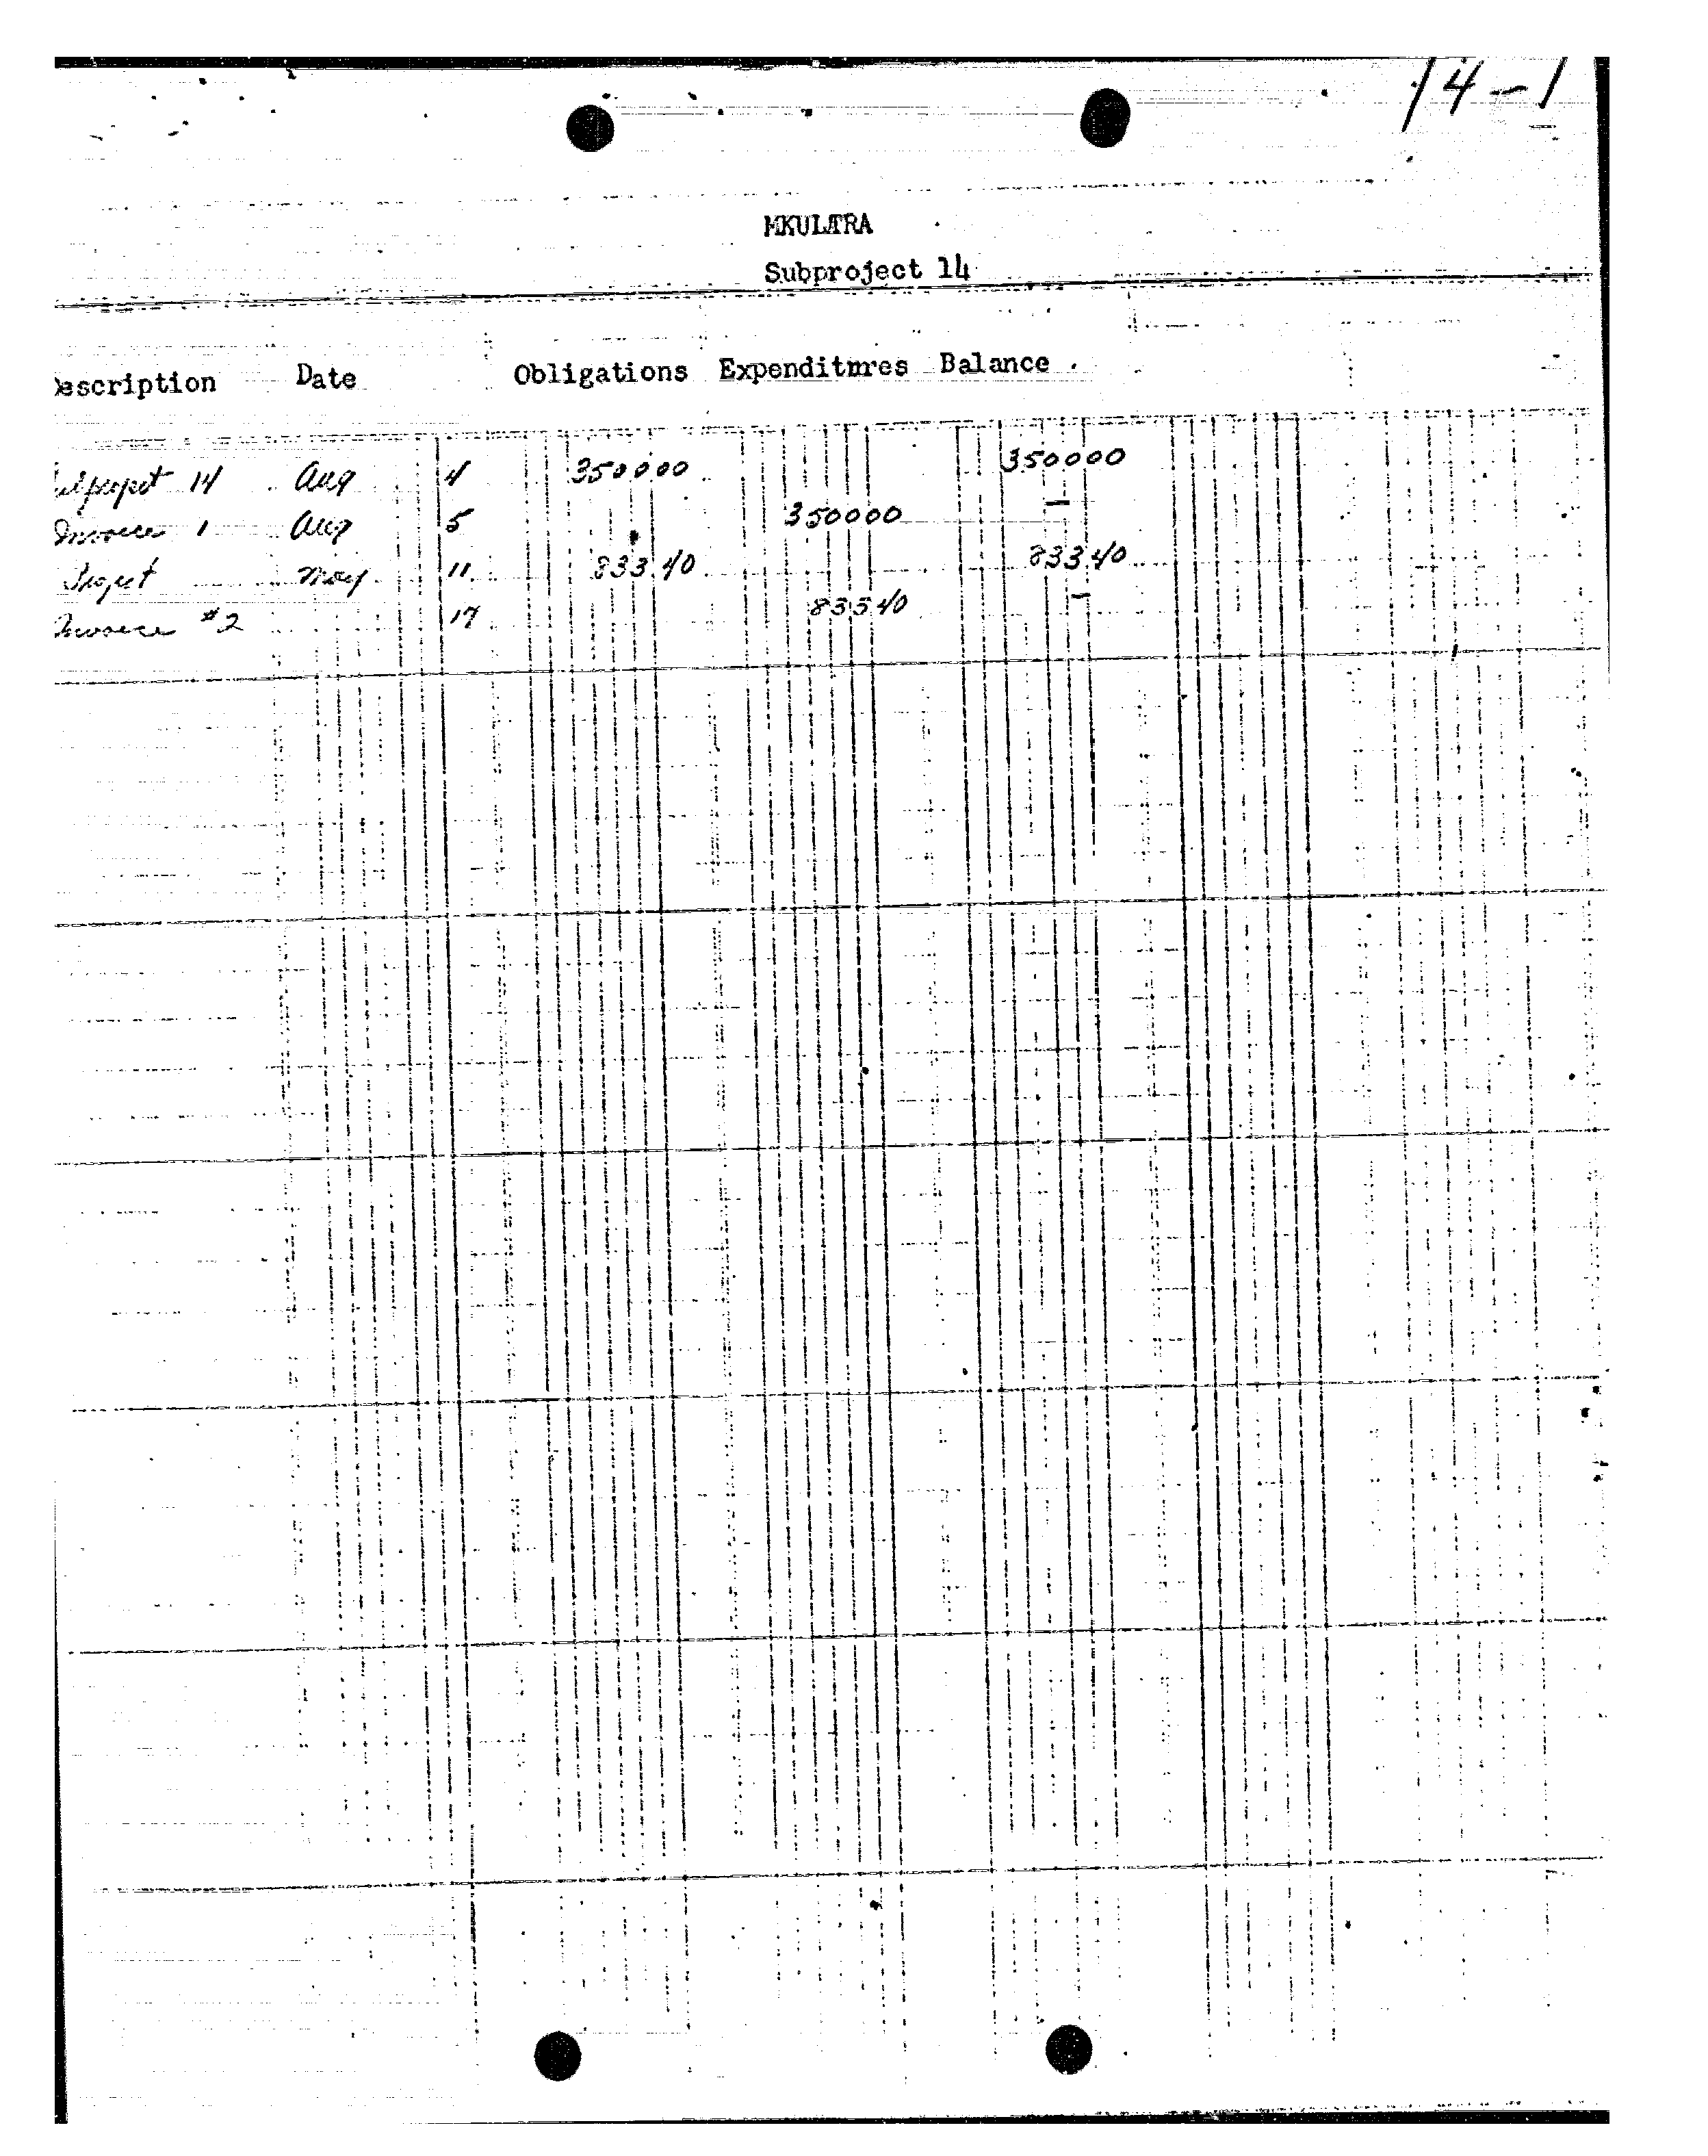 14-1
MKULTRA
Subproject 14
Description Date Obligations Expenditures Balance
Subproject 14 Aug 4 350000 350000
Invoice 1 Aug 5 350000 —
Project May 11 83340 83340
Invoice #2 17 83340 —